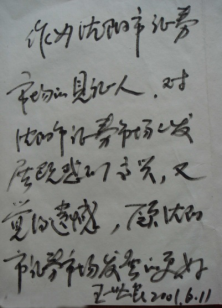 作为沈阳市证券
市场的见证人，对
沈阳市证券市场的发
展既感到高兴，又
觉得遗憾，愿沈阳
市证券市场发展的更好
2001.6.11